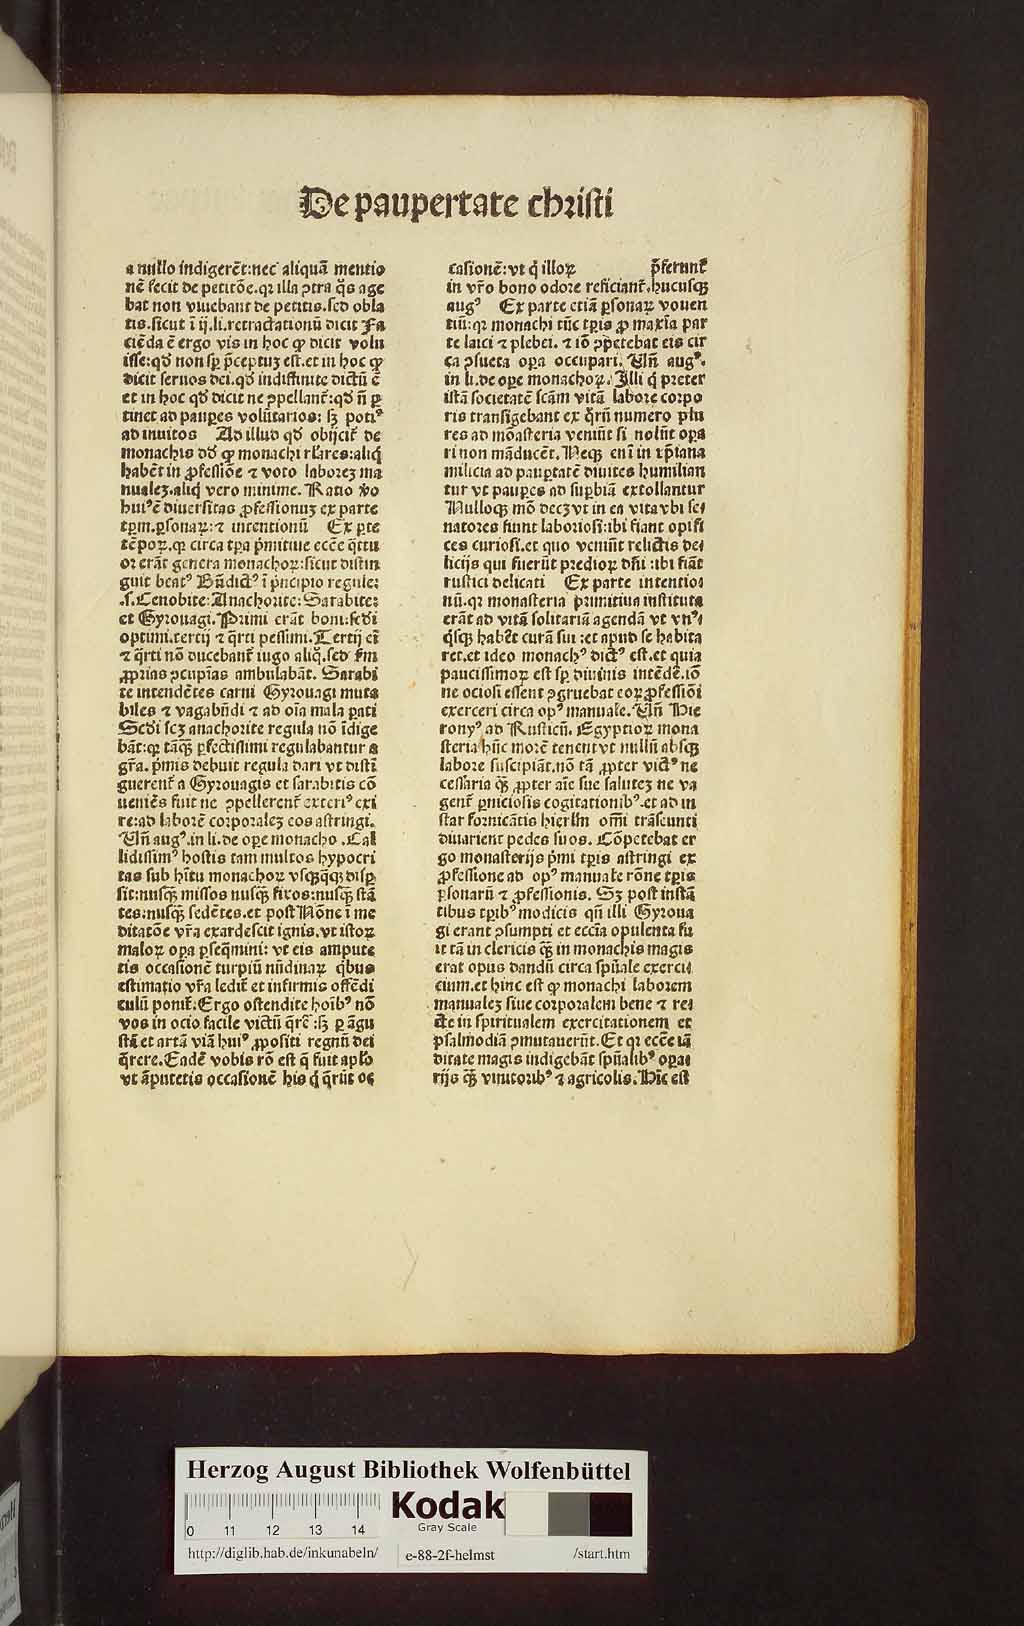 De paupertate christi
a nullo indigerēt:nec aliquā mentio
nē fecit de petitōe.qꝛ illa ↄtra q̄s age
bat non viuebant de petitis.sed obla
tis.sicut ī ij.li.retractationū dicit Fa
ciēda ē ergo vis in hoc ꝙ dicit volu
isse:qd̄ non sꝑ p̄ceptuʒ est.et in hoc ꝙ
dicit seruos dei.qd̄ indiffinite dictū ē
et in hoc qd̄ dicit ne ↄpellant᷑:qd̄ n̄ ꝑ
tinet ad pauꝑes volūtarios: sʒ poti᷒
ad inuitos Ad illud qd̄ obijcit᷑ de
monachis dd̄ ꝙ monachi rl̄ares:aliq̇
habēt in ꝓfessiōe ⁊ voto laboreʒ ma
nualeʒ.aliq̇ vero minime. Ratio ꝟo
hui᷒ ē diuersitas ꝓfessionuʒ ex parte
tꝑm.ꝑsonaꝝ:⁊ intentionū Ex ꝑte
tēpoꝝ.ꝙ circa tꝑa p̄mitiue ecc̄e q̄ttu
or erāt genera monachoꝝ:sicut distin
guit beat᷒ Bn̄dict᷒ ī p̄ncipio regule:
.s.Cenobite:Anachorite:Sarabite:
et Gyrouagi. Primi erāt boni:scd̄i
optimi.tercij ⁊ q̄rti pessimi. Tertij eī
⁊ q̄rti nō ducebant᷑ iugo aliq̇.sed f̄m
ꝓprias ↄcupīas ambulabāt. Sarabi
te intendētes carni Gyrouagi muta
biles ⁊ vagabūdi ⁊ ad oīa mala ꝑati
Scd̄i scʒ anachorite regula nō īdige
bāt:ꝙ tāqꝫ ꝑfectissimi regulabantur a
gr̄a. p̄mis debuit regula dari vt distī
guerent᷑ a Gyrouagis et sarabitis cō
ueniēs fuit ne ↄpellerent᷑ exteri᷒ exi
re:ad laborē corporaleʒ eos astringi.
Vn̄ aug᷒.in li.de oꝑe monacho .Cal
lidissim᷒ hostis tam multos hypocri
tas sub hītu monachoꝝ vsqꝫq̄qꝫ disꝑ
sit:nusqꝫ missos nusqꝫ fixos:nusqꝫ stā
tes:nusqꝫ sedētes.et post Nōne ī me
ditatōe vr̄a exardescit ignis.vt istoꝝ
maloꝝ oꝑa ꝑseq̄mini: vt eis ampute
tis occasionē turpiū nūdinaꝝ qbus
estimatio vr̄a ledit᷑ et infirmis offēdi
culū ponit᷑.Ergo ostendite hoīb᷒ nō
vos in ocio facile victū q̄rē:sʒ ꝑ āgu
stā et artā viā hui᷒ ꝓpositi regnū dei
q̄rere.Eadē vobis rō est q̄ fuit apl̄o
vt āputetis occasionē his q̇ q̄rūt oc
casionē:vt q̇ illoꝝ p̄ferunt᷑
in vr̄o bono odore reficiant᷑.hucusqꝫ
aug᷒ Ex parte etiā ꝑsonaꝝ vouen
tiū:qꝛ monachi tūc tꝑis ꝓ maxīa par
te laici ⁊ plebei. ⁊ iō ↄpetebat eis cir
ca ↄsueta oꝑa occupari. Vn̄ aug᷒.
in li.de oꝑe monachoꝝ. Illi q̇ preter
istā societatē scām vitā labore corpo
ris transigebant ex q̄rū numero plu
res ad mōasteria veniūt si nolūt oꝑa
ri non māducēt. Neqꝫ enī in xp̄iana
milicia ad pauꝑtatē diuites humilian
tur vt pauꝑes ad suꝑbiā extollantur
Nulloqꝫ mō decʒ vt in ea vita vbi se
natores fiunt laboriosi:ibi fiant opifi
ces curiosi.et quo veniūt relictis de
licijs qui fuerūt predioꝝ dn̄i :ibi fiāt
rustici delicati Ex parte intentio
nū.qꝛ monasteria primitiua instituta
erāt ad vitā solitariā agendā vt vn᷒
q̇sqꝫ habēt curā sui :et apud se habita
ret.et ideo monach᷒ dict᷒ est.et quia
paucissimoꝝ est sꝑ diuinis intēdē.iō
ne ociosi essent ↄgruebat eoꝝ ꝓfessiōi
exerceri circa op᷒ manuale. Vn̄ Hie
rony᷒ ad Rusticū. Egyptioꝝ mona
steria hūc morē tenent vt nullū absqꝫ
labore suscipiāt.nō tā ꝓpter vict᷒ ne
cessaria qꝫ ꝓpter aīe sue saluteʒ ne va
gent᷑ ꝑniciosis cogitationib᷒.et ad in
star fornicātis hierl̄m om̄i trāseunti
diuarient pedes suos. Cōpetebat er
go monasterijs p̄mi tꝑis astringi ex
ꝓfessione ad op᷒ manuale rōne tꝑis
ꝑsonarū ⁊ ꝓfessionis. Sʒ post instā
tibus tꝑib᷒ modicis qn̄ illi Gyroua
gi erant ↄsumpti et eccīa opulenta fu
it tā in clericis qꝫ in monachis magis
erat opus dandū circa spūale exerci
cium.et hinc est ꝙ monachi laborem
manualeʒ siue corporalem bene ⁊ re
cte in spiritualem exercitationem et
psalmodiā ꝑmutauerūt. Et qꝛ ecc̄e iā
ditate magis indigebāt spūalib᷒ oꝑa
rijs qꝫ vinitorib᷒ ⁊ agricolis. Hīc est
Herzog August Bibliothek Wolfenbüttel
0 11 12 13 14
Kodak
Gray Scale
http://diglib.hab.de/inkunabeln/ e-88-2f-helmst /start.htm